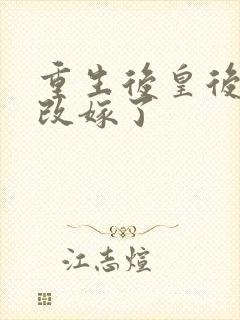 重生後皇後
改嫁了
江志煊